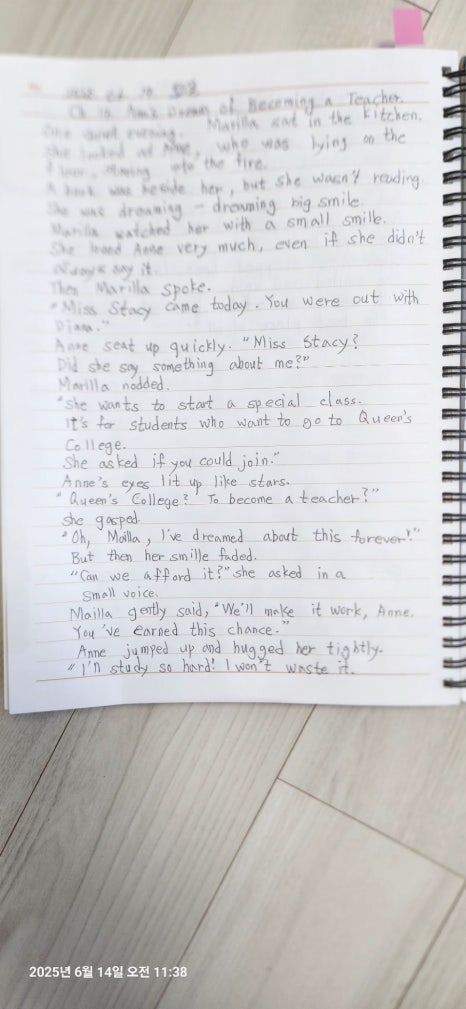 Ch 10. Anne's Dream of Becoming a Teacher.
One quiet evening. Marilla sat in the kitchen.
She looked at Anne, who was lying on the
floor, staring into the fire.
A book was beside her, but she wasn't reading.
She was dreaming - dreaming big smile.
Marilla watched her with a small smille.
She loved Anne very much, even if she didn't
always say it.
Then Marilla spoke.
"Miss Stacy came today. You were out with
Diana."
Anne seat up quickly. "Miss Stacy?
Did she say something about me?"
Marilla nodded.
"she wants to start a special class.
It's for students who want to go to Queen's
College.
She asked if you could join."
Anne's eyes lit up like stars.
"Queen's College? To become a teacher?"
she gasped.
"Oh, Mailla, I've dreamed about this forever!"
But then her smille faded.
"Can we afford it?" she asked in a
small voice.
Mailla gently said, "We'll make it work, Anne.
You've earned this chance."
Anne jumped up and hugged her tightly.
"I'll study so hard! I won't waste it.
2025년 6월 14일 오전 11:38